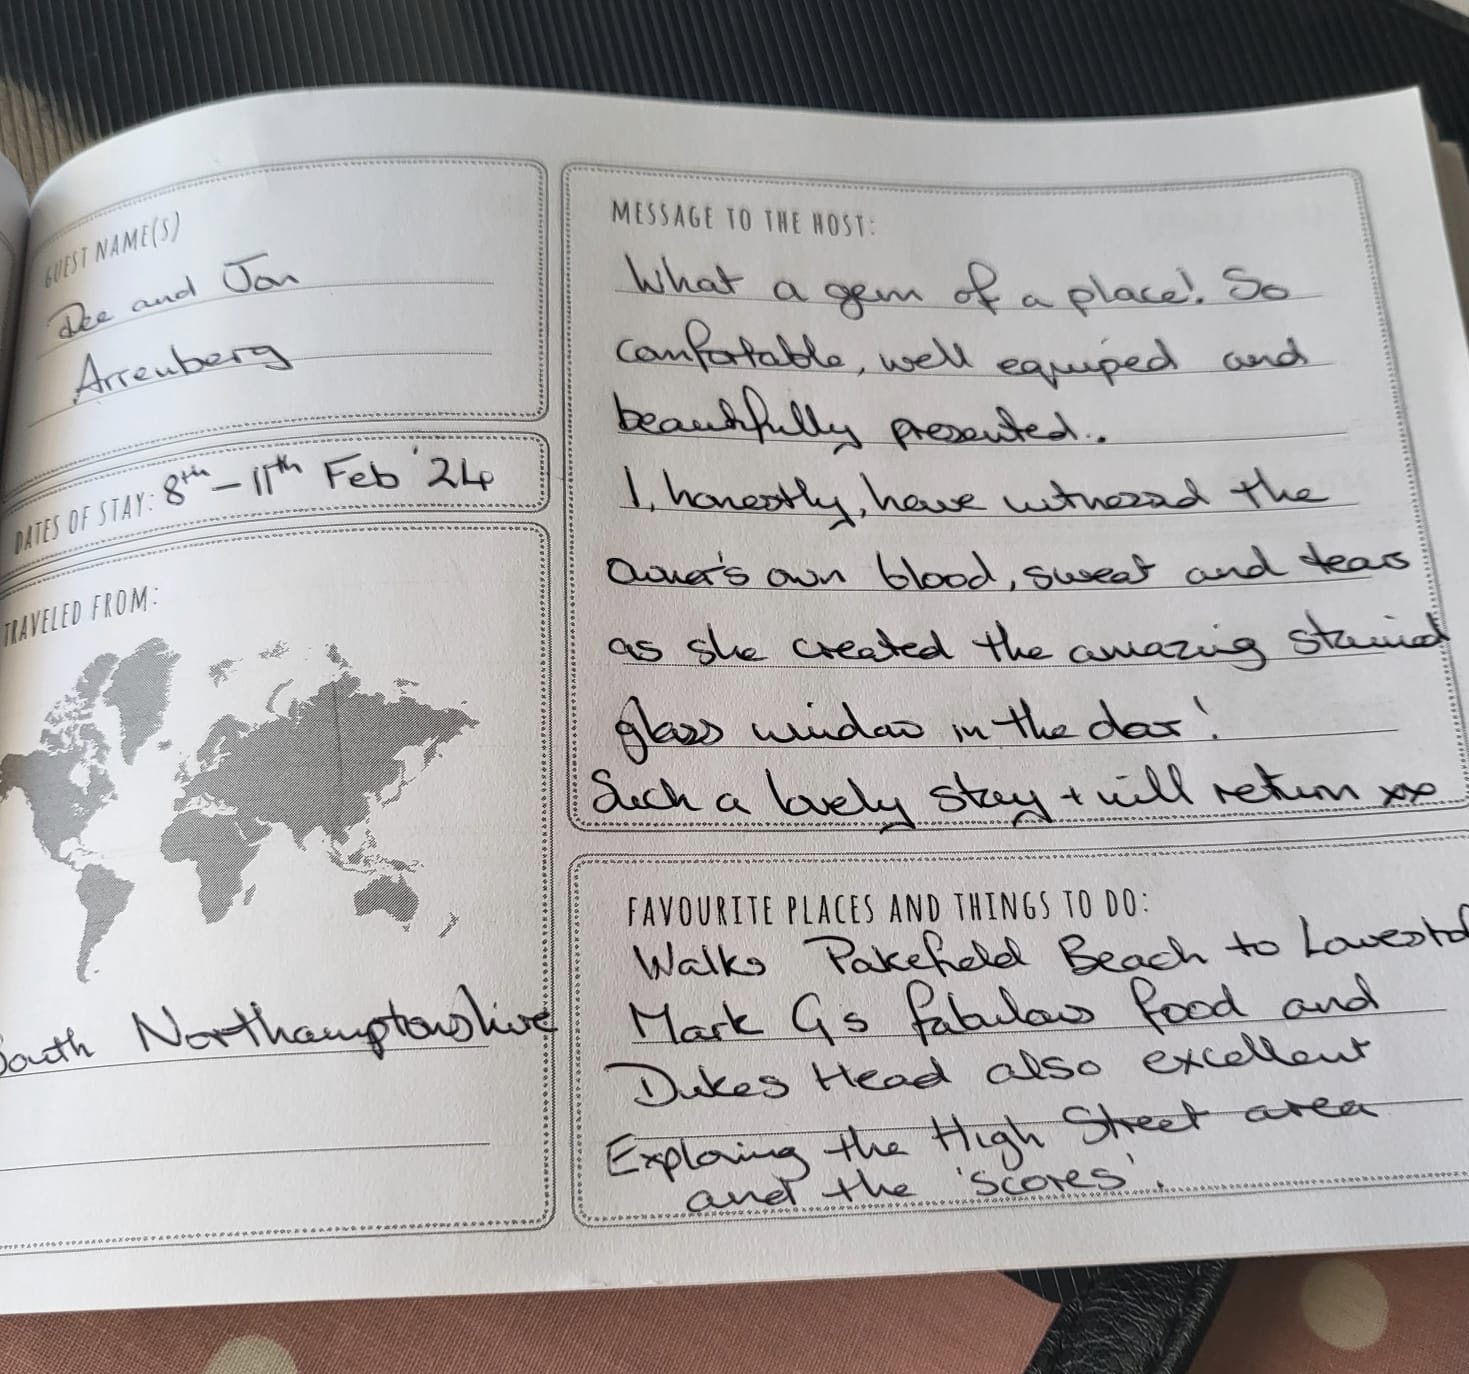 GUEST NAME(S)
Dee and Jon
Arrenberg
DATES OF STAY: 8th – 11th Feb '24
TRAVELED FROM:
South Northamptonshire
MESSAGE TO THE HOST:
What a gem of a place! So
comfortable, well equiped and
beautifully presented..
I, honestly, have witnessed the
owner's own blood, sweat and tears
as she created the amazing stained
glass window in the door!
Such a lovely stay + will return xx
FAVOURITE PLACES AND THINGS TO DO:
Walks Pakefield Beach to Lowestof
Mark Gs fabulous food and
Dukes Head also excellent
Exploring the High Street area
and the 'scores'.